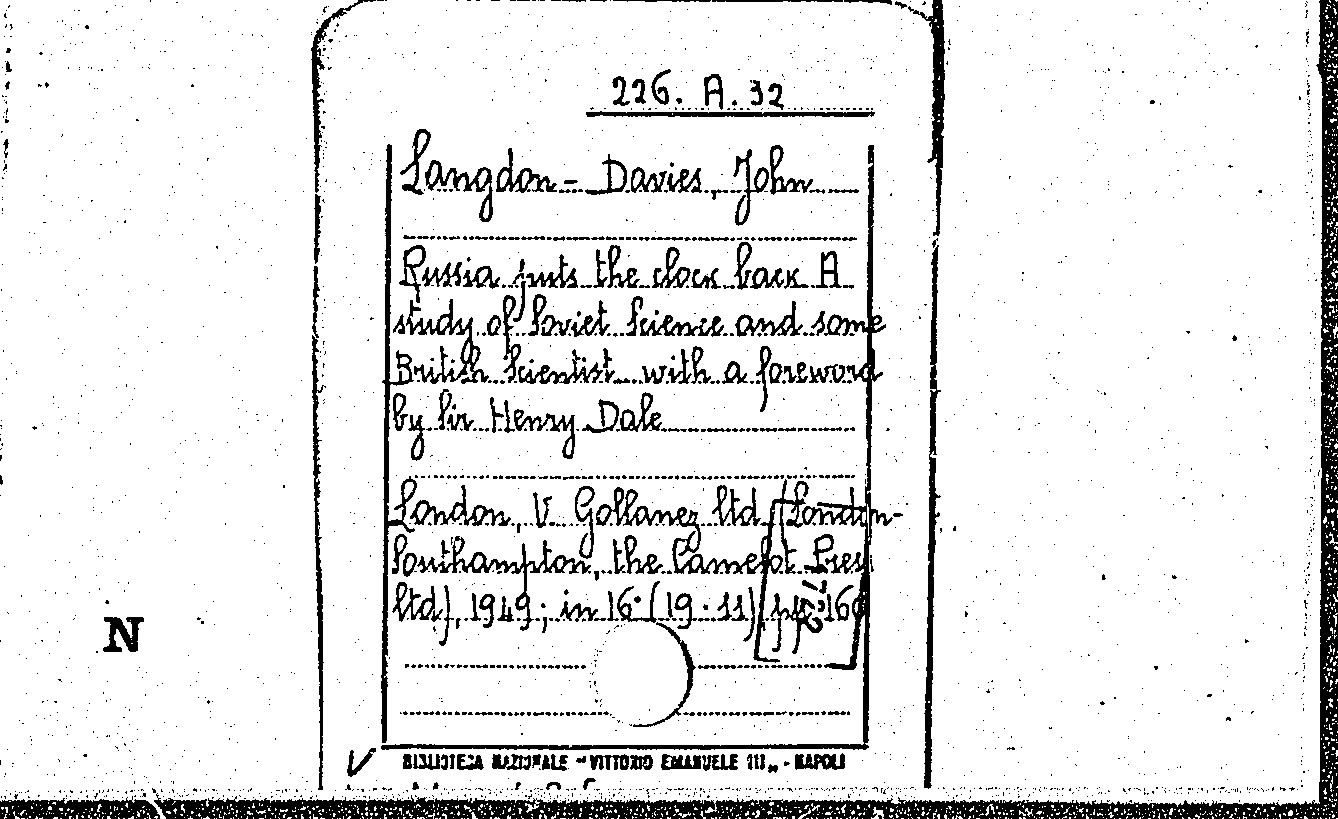 226. A. 32
Langdon - Davies, John
Russia puts the clock back A
study of Soviet Science and some
British Scientist with a foreword
by Sir Henry Dale
London, V. Gollancz ltd (London-
Southampton, the Camelot Press
ltd), 1949; in 16° (19 · 11) pp. 160
N
BIBLIOTECA NAZIONALE "VITTORIO EMANUELE III" - NAPOLI